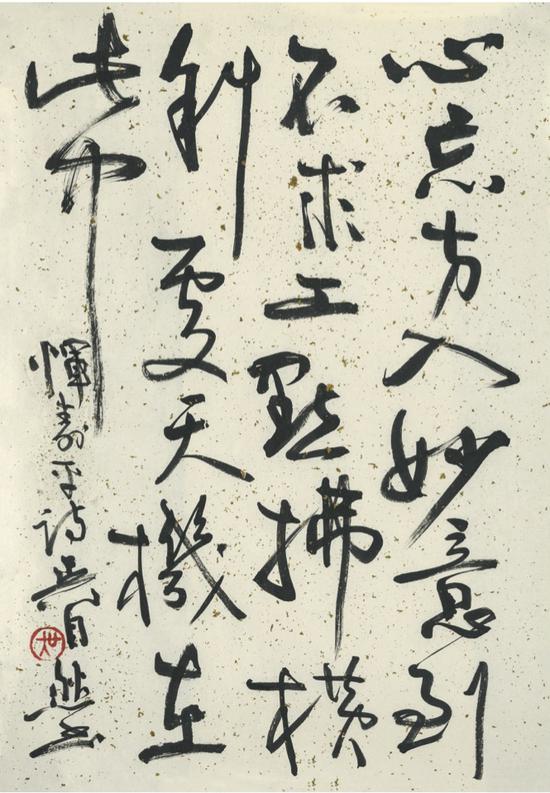 心忘方入妙意到
不求工點拂橫
斜處天機在
此中
惲壽平詩